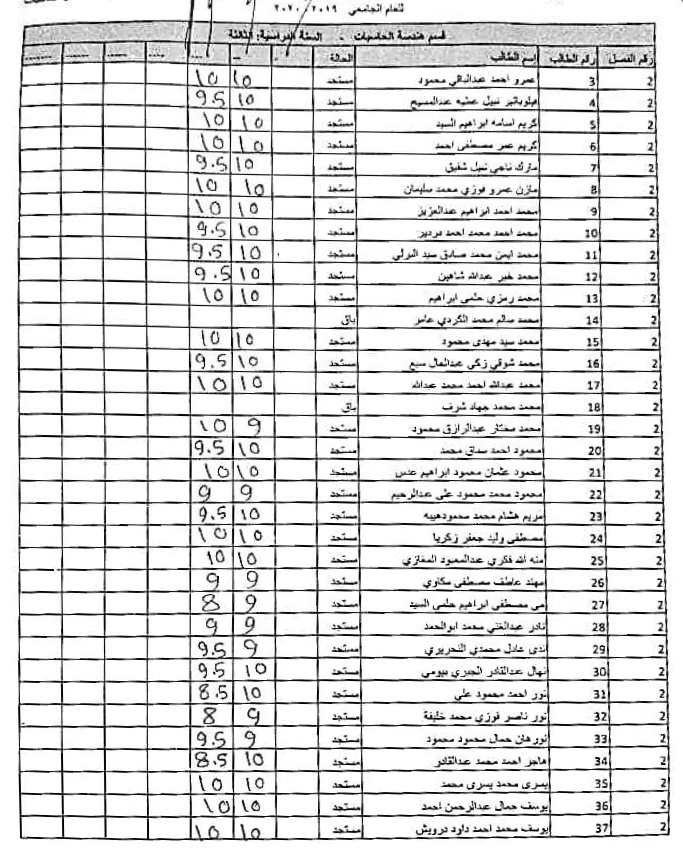 للعام الجامعي ٢٠١٩/ ٢٠٢٠
قسم هندسة الحاسبات - السنة الدراسية: الثالثة
رقم الفصل رقم الطالب إسم الطالب الحالة - -- ---- ------- ------- -------
2 3 عمرو احمد عبدالباقي محمود مستجد 10 10
2 4 فيلوباتير نبيل عطيه عبدالمسيح مستجد 10 9.5
2 5 كريم اسامه ابراهيم السيد مستجد 10 10
2 6 كريم عمر مصطفى احمد مستجد 10 10
2 7 مارك ناجي نبيل شفيق مستجد 10 9.5
2 8 مازن عمرو فوزي محمد سليمان مستجد 10 10
2 9 محمد احمد ابراهيم عبدالعزيز مستجد 10 10
2 10 محمد احمد محمد احمد دردير مستجد 10 9.5
2 11 محمد ايمن محمد صادق سيد البرلي مستجد 10 9.5
2 12 محمد خير عبدالله شاهين مستجد 10 9.5
2 13 محمد رمزي حلمى ابراهيم مستجد 10 10
2 14 محمد سالم محمد الكردي عامر باق
2 15 محمد سيد مهدى محمود مستجد 10 10
2 16 محمد شوقي زكى عبدالعال سبع مستجد 10 9.5
2 17 محمد عبدالله احمد محمد عبدالله مستجد 10 10
2 18 محمد محمد جهاد شرف باق
2 19 محمد مختار عبدالرازق محمود مستجد 9 10
2 20 محمود احمد صداق محمد مستجد 10 9.5
2 21 محمود عثمان محمود ابراهيم عدس مستجد 10 10
2 22 محمود محمد محمود على عبدالرحيم مستجد 9 9
2 23 مريم هشام محمد محمودهيبه مستجد 10 9.5
2 24 مصطفى وليد جعفر زكريا مستجد 10 10
2 25 منه الله فكري عبدالمعبود المغازي مستجد 10 10
2 26 مهند عاطف مصطفى مكاوي مستجد 9 9
2 27 مى مصطفى ابراهيم حلمى السيد مستجد 9 8
2 28 نادر عبدالغني محمد ابوالحمد مستجد 9 9
2 29 ندى عادل محمدي النحريري مستجد 9 9.5
2 30 نهال عبدالقادر الجبري بيومى مستجد 10 9.5
2 31 نور احمد محمود على مستجد 10 8.5
2 32 نور ناصر فوزي محمد خليفة مستجد 9 8
2 33 نورهان جمال محمود محمود مستجد 9 9.5
2 34 هاجر احمد محمد عبدالقادر مستجد 10 8.5
2 35 يسرى محمد يسرى محمد مستجد 10 10
2 36 يوسف جمال عبدالرحمن احمد مستجد 10 10
2 37 يوسف محمد احمد داود درويش مستجد 10 10